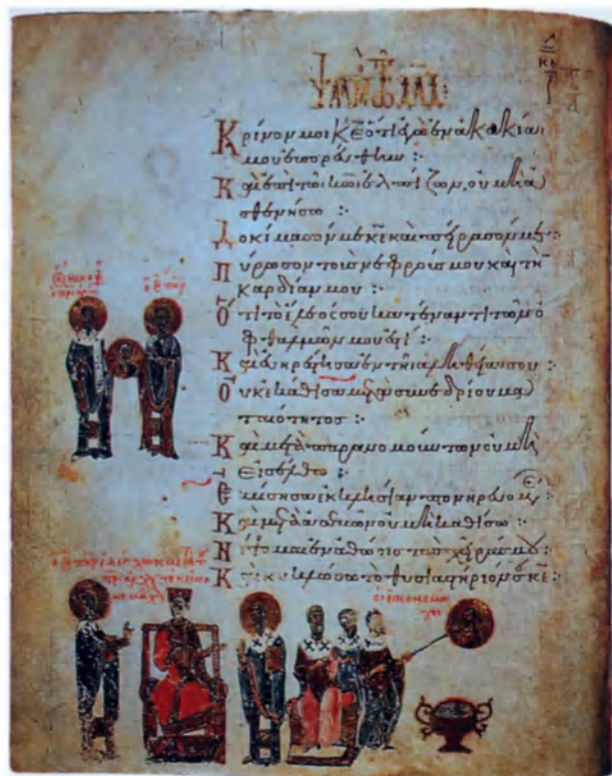 Κρίνον μοι κ̅ε̅ ὅτι ἐγὼ ἐν ἀκακίαι
μου ἐπορεύθην :
Καὶ ἐπὶ τῶι κ̅ω̅ι ἐλπίζων, οὐ μὴ ἀ
σθενήσω :
Δοκίμασόν με κ̅ε̅ καὶ πείρασόν με :
Πύρωσον τοὺς νεφρούς μου καὶ τὴν
καρδίαν μου :
Ὅτι τὸ ἔλεός σου κατέναντι τῶν ὀ
φθαλμῶν μου ἐστί :
Καὶ εὐηρέστησα ἐν τῆι ἀληθείαι σου :
Οὐκ ἐκάθισα μετὰ συνεδρίου μα
ταιότητος :
Καὶ μετὰ παρανομούντων οὐ μὴ
εἰσέλθω :
Ἐμίσησα ἐκκλησίαν πονηρευομ
Καὶ μετὰ ἀσεβῶν οὐ μὴ καθίσω :
Νίψομαι ἐν ἀθώοις τὰς χεῖράς μου :
Καὶ κυκλώσω τὸ θυσιαστήριόν σου κ̅ε̅ :
οἱ εἰκονομά
χοι